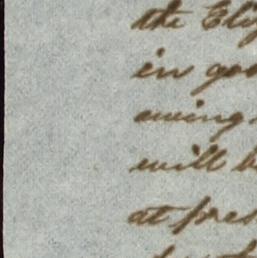 the Eli
in goo
owing
will b
at pres